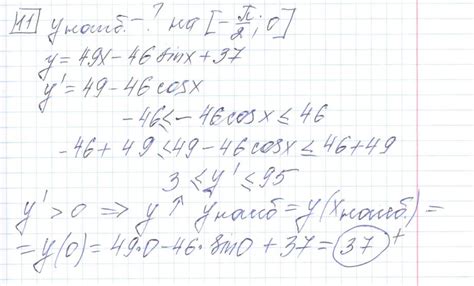 11 yнаиб. -? на [-π/2; 0]
y = 49x - 46 sinx + 37
y' = 49 - 46 cosx
-46 ≤ -46 cosx ≤ 46
-46 + 49 ≤ 49 - 46 cosx ≤ 46 + 49
3 ≤ y' ≤ 95
y' > 0 ⇒ y ↑ yнаиб = y(xнаиб.) =
= y(0) = 49·0 - 46·sin0 + 37 = 37 +